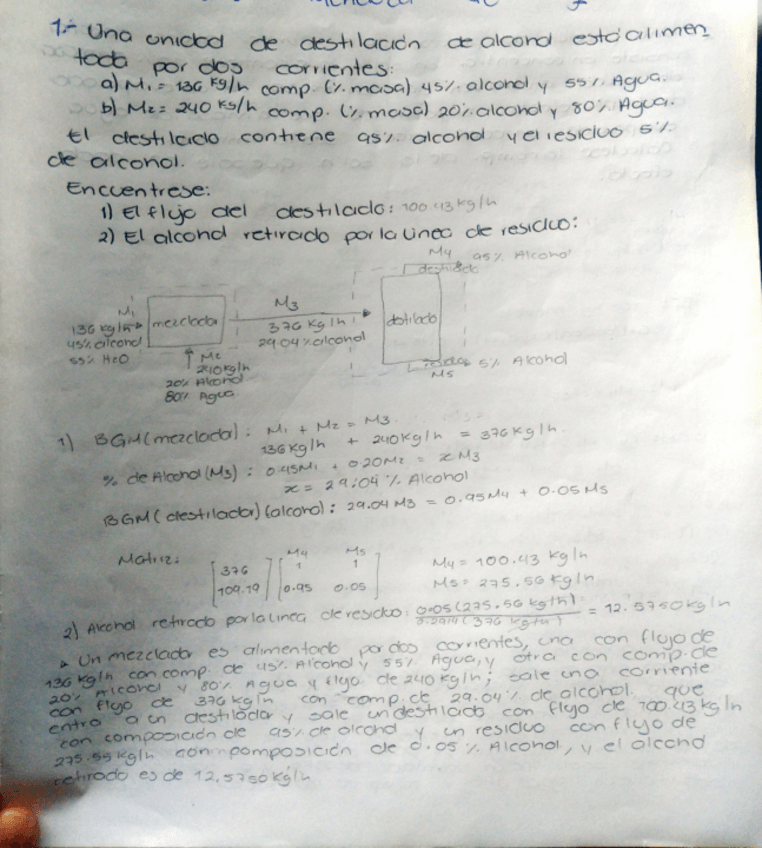 1.- Una unidad de destilación de alcohol está alimen_
tada por dos corrientes:
a) M1 = 136 kg/h comp. (% masa) 45% alcohol y 55% Agua.
b) M2 = 240 kg/h comp. (% masa) 20% alcohol y 80% Agua.
El destilado contiene 95% alcohol y el residuo 5%
de alcohol.
Encuentrese:
1) El flujo del destilado: 100.43 kg/h
2) El alcohol retirado por la linea de residuo:
M4 95% Alcohol
destilado
M1
136 kg/h
45% alcohol
55% H2O
mezclador
M3
376 Kg/h
29.04% alcohol
destilado
M2
240 kg/h
20% Alcohol
80% Agua
residuo 5% Alcohol
M5
1) BGM (mezclador): M1 + M2 = M3
136 Kg/h + 240 Kg/h = 376 Kg/h
% de Alcohol (M3): 0.45M1 + 0.20M2 = x M3
x = 29.04 % Alcohol
BGM (destilador) (alcohol): 29.04 M3 = 0.95 M4 + 0.05 M5
Matriz:
M4 M5
376 1 1
109.19 0.95 0.05
M4 = 100.43 kg/h
M5 = 275.56 Kg/h
2) Alcohol retirado por la linea de residuo: 0.05 (275.56 kg/h) / (376 kg/h) = 12.5750 kg/h
Un mezclador es alimentado por dos corrientes, una con flujo de
136 kg/h con comp. de 45% Alcohol y 55% Agua, y otra con comp. de
20% Alcohol y 80% Agua y flujo de 240 kg/h; sale una corriente
con flujo de 376 kg/h con comp. de 29.04% de alcohol. que
entra a un destilador y sale un destilado con flujo de 100.43 kg/h
con composición de 95% de alcohol y un residuo con flujo de
275.55 kg/h con composición de 0.05% Alcohol, y el alcohol
retirado es de 12.5750 kg/h